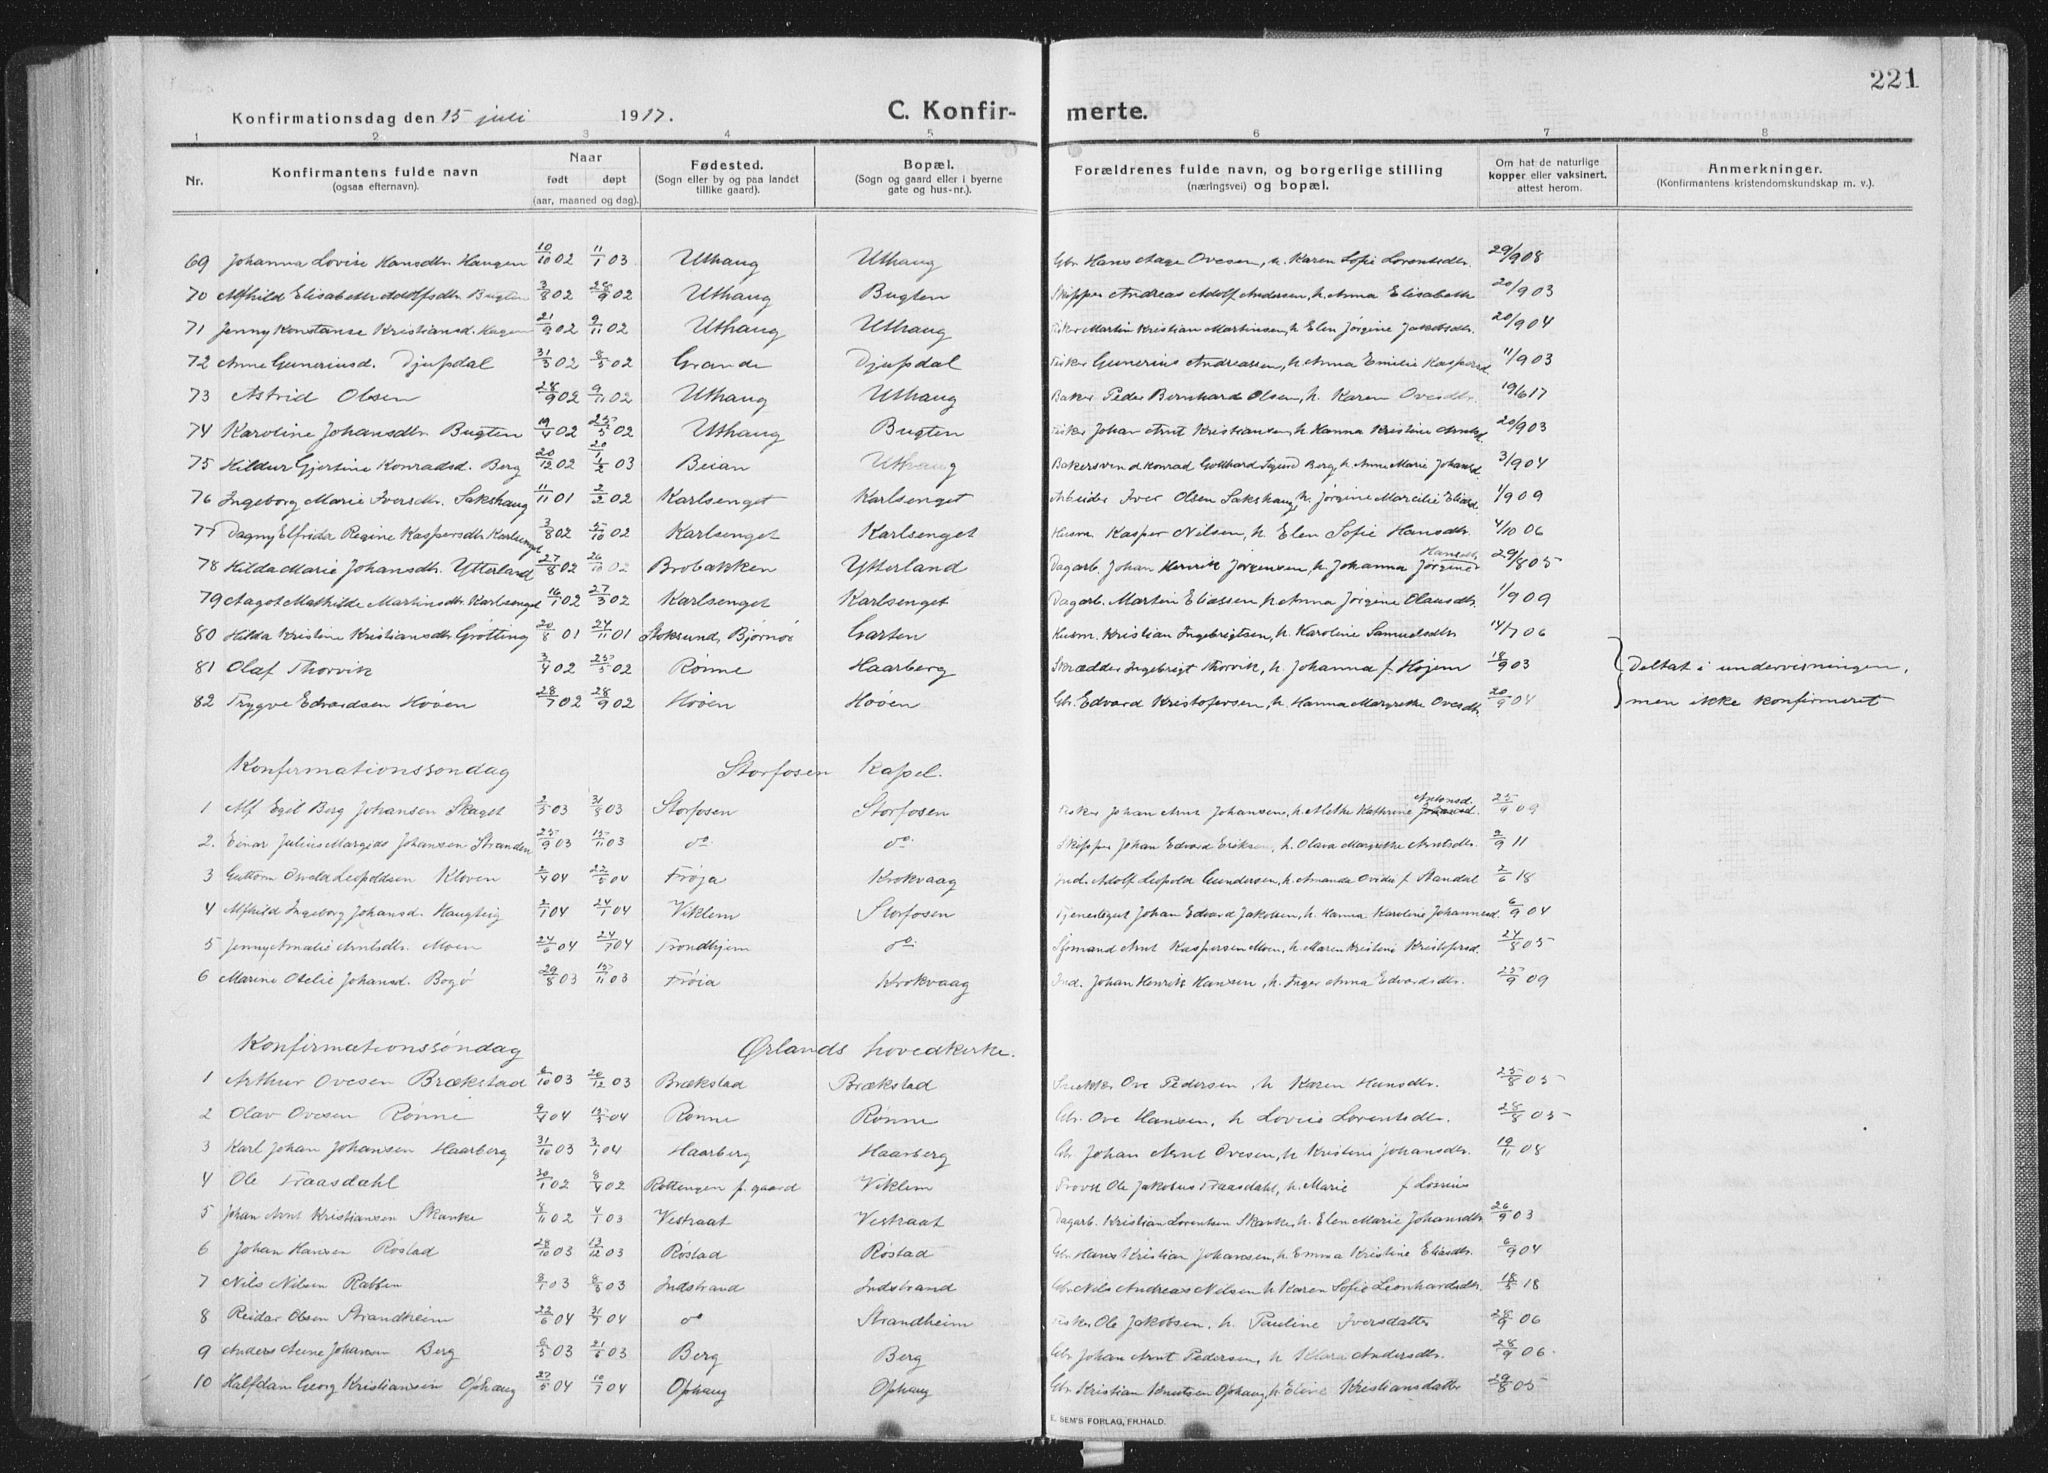 221
Konfirmationsdag den 15 juli 1917. C. Konfir- merte.
1 2 3 4 5 6 7 8
Nr. Konfirmantens fulde navn (ogsaa efternavn). Naar født døpt (aar, maaned og dag). Fødested. (Sogn eller by og paa landet tillike gaard). Bopæl. (Sogn og gaard eller i byerne gate og hus-nr.). Forældrenes fulde navn, og borgerlige stilling (næringsvei) og bopæl. Om hat de naturlige kopper eller vaksinert, attest herom. Anmerkninger. (Konfirmantens kristendomskundskap m. v.).
69 Johanna Lovise Hansdtr. Haugen 10/10 02 11/1 03 Uthaug Uthaug Gbr. Hans Aage Ovesen, h. Karen Sofie Lorentsdtr. 29/9 08
70 Alfhild Elisabeth Adolfsdtr. Bugten 3/8 02 28/9 02 Uthaug Bugten Skipper Andreas Adolf Andersen, h. Anna Elisabeth 20/9 03
71 Jenny Konstanse Kristiansd. Hagen 21/9 02 9/11 02 Uthaug Uthaug Fisker Martin Kristian Martinsen, h. Elen Jørgine Jakobsdtr. 20/9 04
72 Anne Guneriusd. Djupdal 31/3 02 8/5 02 Grande Djupdal Fisker Gunerius Andreassen, h. Anna Emilie Kaspersd. 11/9 03
73 Astrid Olsen 28/9 02 9/11 02 Uthaug Uthaug Baker Peder Bernhard Olsen, h. Karen Ovesdtr. 19/6 17
74 Karoline Johansdtr. Bugten 19/4 02 25/5 02 Uthaug Bugten Fisker Johan Arnt Kristiansen, h. Hanna Kristine Arntsd. 20/9 03
75 Hildur Gjertine Konradsd. Berg 20/12 02 1/2 03 Beian Uthaug Bakersvend Konrad Gotthard Sigurd Berg, h. Anne Marie Johansd. 3/9 04
76 Ingeborg Marie Iversdtr. Sakshaug 11/11 01 2/2 02 Karlsenget Karlsenget Arbeider Iver Olsen Sakshaug, h. Jørgine Marcelie Eliasd. 1/9 09
77 Dagny Elfrida Regine Kaspersdtr. Karlsenget 3/8 02 5/10 02 Karlsenget Karlsenget Husm. Kasper Nilsen, h. Elen Sofie Hansdtr. 4/10 06
78 Hilda Marie Johansdtr. Ytterland 27/8 02 26/10 02 Brobakken Ytterland Dagarb. Johan Henrik Jørgensen, h. Johanna Jørgine Hansdtr. 29/8 05
79 Aagot Mathilde Martinsdtr. Karlsenget 16/1 02 27/3 02 Karlsenget Karlsenget Dagarb. Martin Eliassen, h. Anna Jørgine Olausdtr. 1/9 09
80 Hilda Kristine Kristiansdtr. Grøtting 20/8 01 24/11 01 Stoksund, Bjørnør Garten Husm. Kristian Ingebrigtsen, h. Karoline Samuelsdtr. 14/7 06
81 Olaf Thorvik 3/4 02 25/5 02 Rønne Haarberg Skrædder Ingebrigt Thorvik, h. Johanna f. Hojem 18/9 03 Deltat i undervisningen,
82 Trygve Edvardsen Høøen 28/7 02 28/9 02 Høøen Høøen Gbr. Edvard Kristofersen, h. Hanna Margrethe Ovesdtr. 20/9 04 men ikke konfirmeret
Konfirmationssøndag Storfosen Kapel.
1 Alf Egil Berg Johansen Skaget 2/5 03 31/8 03 Storfosen Storfosen Fisker Johan Arnt Johansen, h. Alethe Kathrine Antonsd. 25/9 09
2. Einar Julius Margido Johansen Stranden 25/9 03 15/11 03 do do Skipper Johan Edvard Eriksen, h. Olava Margrethe Arntsdtr. 2/9 11
3 Guttorm Leopoldsen Kloven 2/4 04 22/5 04 Frøja Krokvaag Ind. Adolf Leopold Gundersen, h. Amanda Ovidia f. Standal 2/6 18
4 Alfhild Ingeborg Johansd. Haugtrig 2/1 04 24/1 04 Viklem Storfosen Tjenestegut Johan Edvard Jakobsen, h. Hanna Karoline Johannesd. 6/9 04
5 Jenny Amalie Arntsdtr. Moen 24/6 04 24/7 04 Trondhjem do Sjømand Arnt Kaspersen Moen, h. Maren Kristine Kristofersd. 24/8 05
6 Marine Otelie Johansd. Bogø 29/8 03 15/11 03 Frøia Krokvaag Ind. Johan Henrik Hansen, h. Inger Anna Edvardsdtr. 25/9 09
Konfirmationssøndag Ørlands hovedkirke.
1 Arthur Ovesen Brækstad 6/10 03 20/12 03 Brækstad Brækstad Snekker Ove Pedersen, h. Karen Hansdtr. 25/8 05
2 Olav Ovesen Rønne 9/4 04 15/5 04 Rønne Rønne Gbr. Ove Hansen, h. Lovise Lorentsdtr. 28/8 05
3 Karl Johan Johansen Haarberg 31/10 03 3/1 04 Haarberg Haarberg Gbr. Johan Arnt Ovesen, h. Kristine Johansdtr. 10/11 08
4 Ole Traasdahl 30/1 02 8/4 02 Rottengen p. gaard Viklem Provst Ole Jakobus Traasdahl, h. Marie f.
5 Johan Arnt Kristiansen Skanke 8/11 02 4/1 03 Vestraat Vestraat Dagarb. Kristian Lorentsen Skanke, h. Elen Marie Johansdtr. 26/9 03
6 Johan Hansen Røstad 28/10 03 13/12 03 Røstad Røstad Gbr. Hans Kristian Johansen, h. Emma Kristine Eliasdtr. 6/9 04
7 Nils Nilsen Rabben 8/1 03 8/3 03 Indstrand Indstrand Gbr. Nils Andreas Nilsen h. Karen Sofie Leonhardsdtr. 18/5 18
8 Reidar Olsen Strandheim 22/6 04 31/7 04 do Strandheim Fisker Ole Jakobsen, h. Pauline Iversdatter 28/9 06
9 Anders Arne Johansen Berg 6/5 03 21/6 03 Berg Berg Gbr. Johan Arnt Pedersen, h. Klara Andersdtr. 28/9 06.
10 Halfdan Georg Kristiansen Ophaug 27/5 04 10/7 04 Ophaug Ophaug Gbr. Kristian Knutsen Ophaug, h. Eline Kristiansdatter 29/8 05
E. SEM'S FORLAG, FR.HALD.